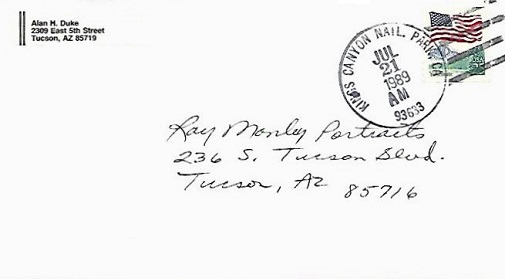 Alan H. Duke
2309 East 5th Street
Tucson, AZ 85719
KINGS CANYON NATL. PARK CA
JUL
21
1989
AM
93633
Ray Manley Portraits
236 S. Tucson Blvd.
Tucson, AZ
85716